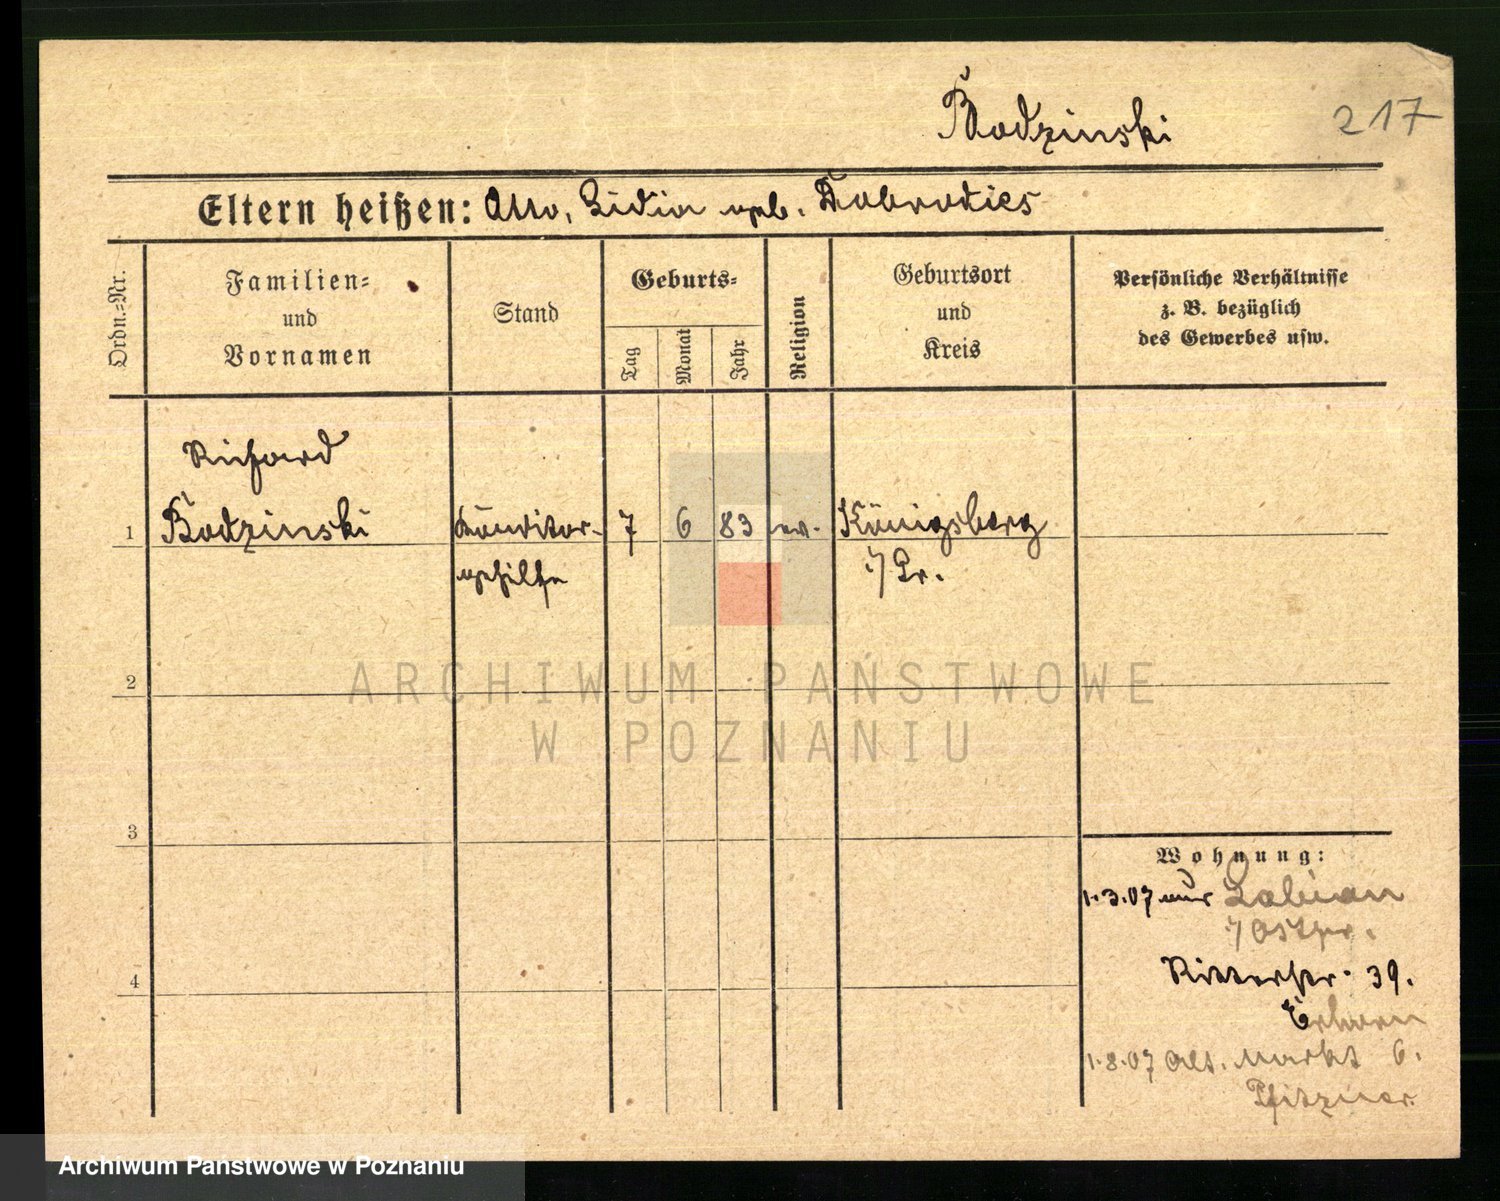 Bodzinski
217
Eltern heißen: Otto, Lidia geb. Dobrodies
Ordn.-Nr.
Familien-
und
Vornamen
Stand
Geburts-
Tag
Monat
Jahr
Religion
Geburtsort
und
Kreis
Persönliche Verhältnisse
z. B. bezüglich
des Gewerbes usw.
Richard
1 Bodzinski Konditor- 7 6 83 ev. Königsberg
gehilfe i/Pr.
2
3
4
Wohnung:
1.3.07 aus Labiau
i/Ostpr.
Ritterstr. 39.
1.8.07 Alt. Markt 6.
Pfitzner.
ARCHIWUM PAŃSTWOWE
W POZNANIU
Archiwum Państwowe w Poznaniu